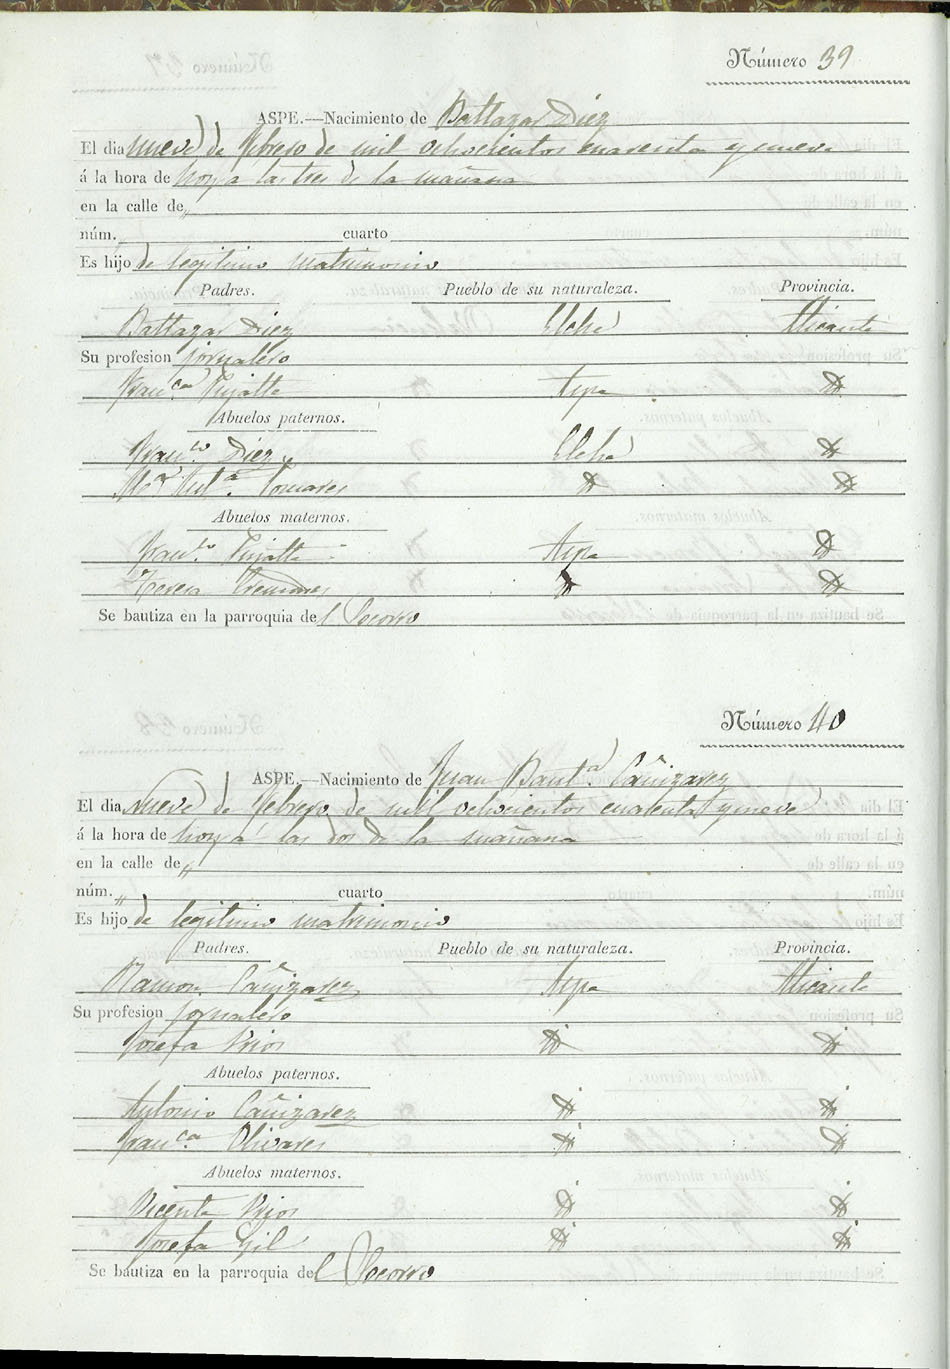 Número 39
ASPE.—Nacimiento de Baltazar Diez
El dia nueve de febrero de mil ochocientos cuarenta y nueve
á la hora de hoy a las tres de la mañana
en la calle de „
núm. cuarto
Es hijo de legitimo matrimonio
Padres. Pueblo de su naturaleza. Provincia.
Baltazar Diez Elche Alicante
Su profesion jornalero
Fran.ca Aspe
Abuelos paternos.
Fran.co Diez Elche
M.a Ant.a Pomares
Abuelos maternos.
Fran.co Aspe
Teresa
Se bautiza en la parroquia del Socorro
Número 40
ASPE.—Nacimiento de Juan Baut.a Cañizarez
El dia Nueve de febrero de mil ochocientos cuarenta y nueve
á la hora de hoy a las dos de la mañana
en la calle de „
núm. „ cuarto
Es hijo de legitimo matrimonio
Padres. Pueblo de su naturaleza. Provincia.
Ramon Cañizarez Aspe Alicante
Su profesion jornalero
Josefa
Abuelos paternos.
Antonio Cañizarez
Fran.ca Olivares
Abuelos maternos.
Vicente
Josefa Gil
Se bautiza en la parroquia del Socorro